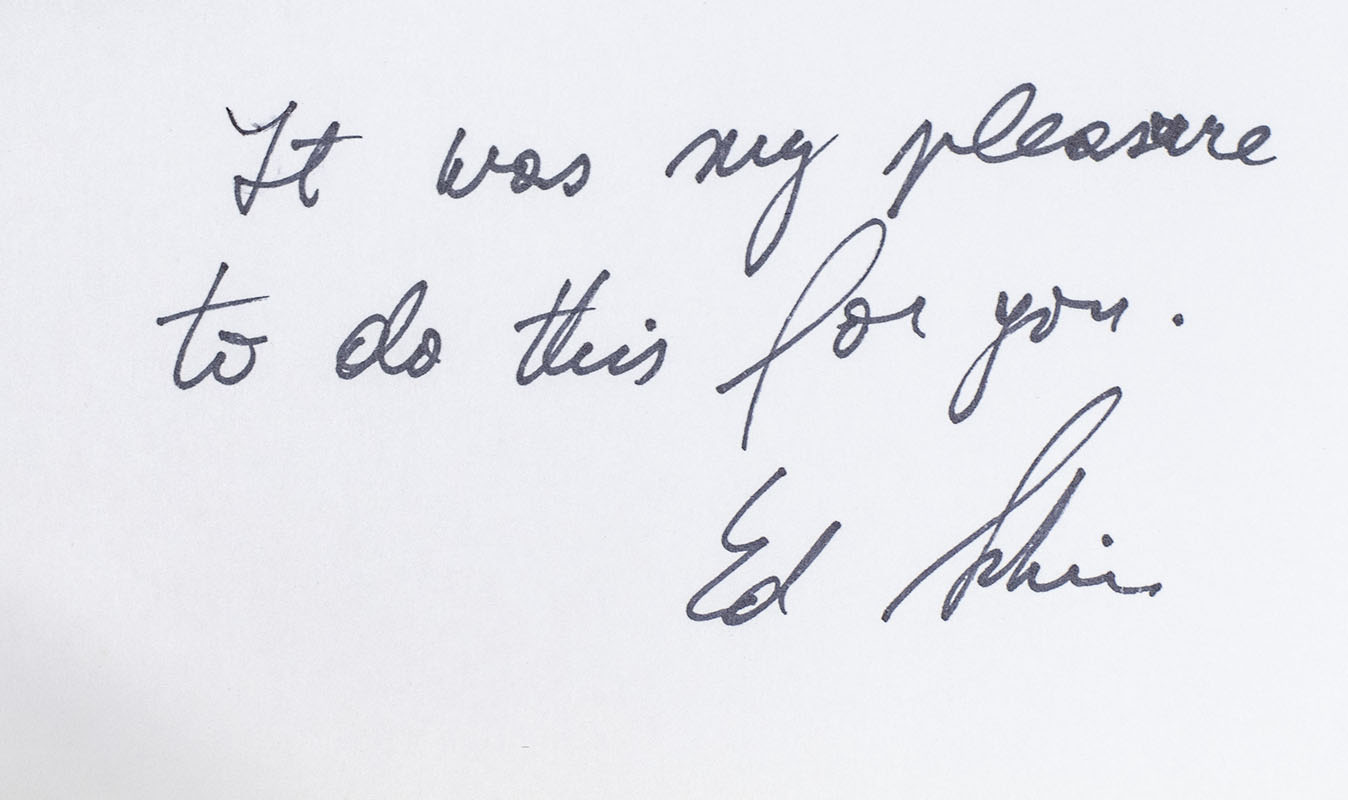 It was my pleasure
to do this for you.
Ed Shin